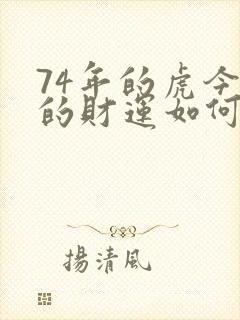 74年的虎今
的財運如何
揚清風